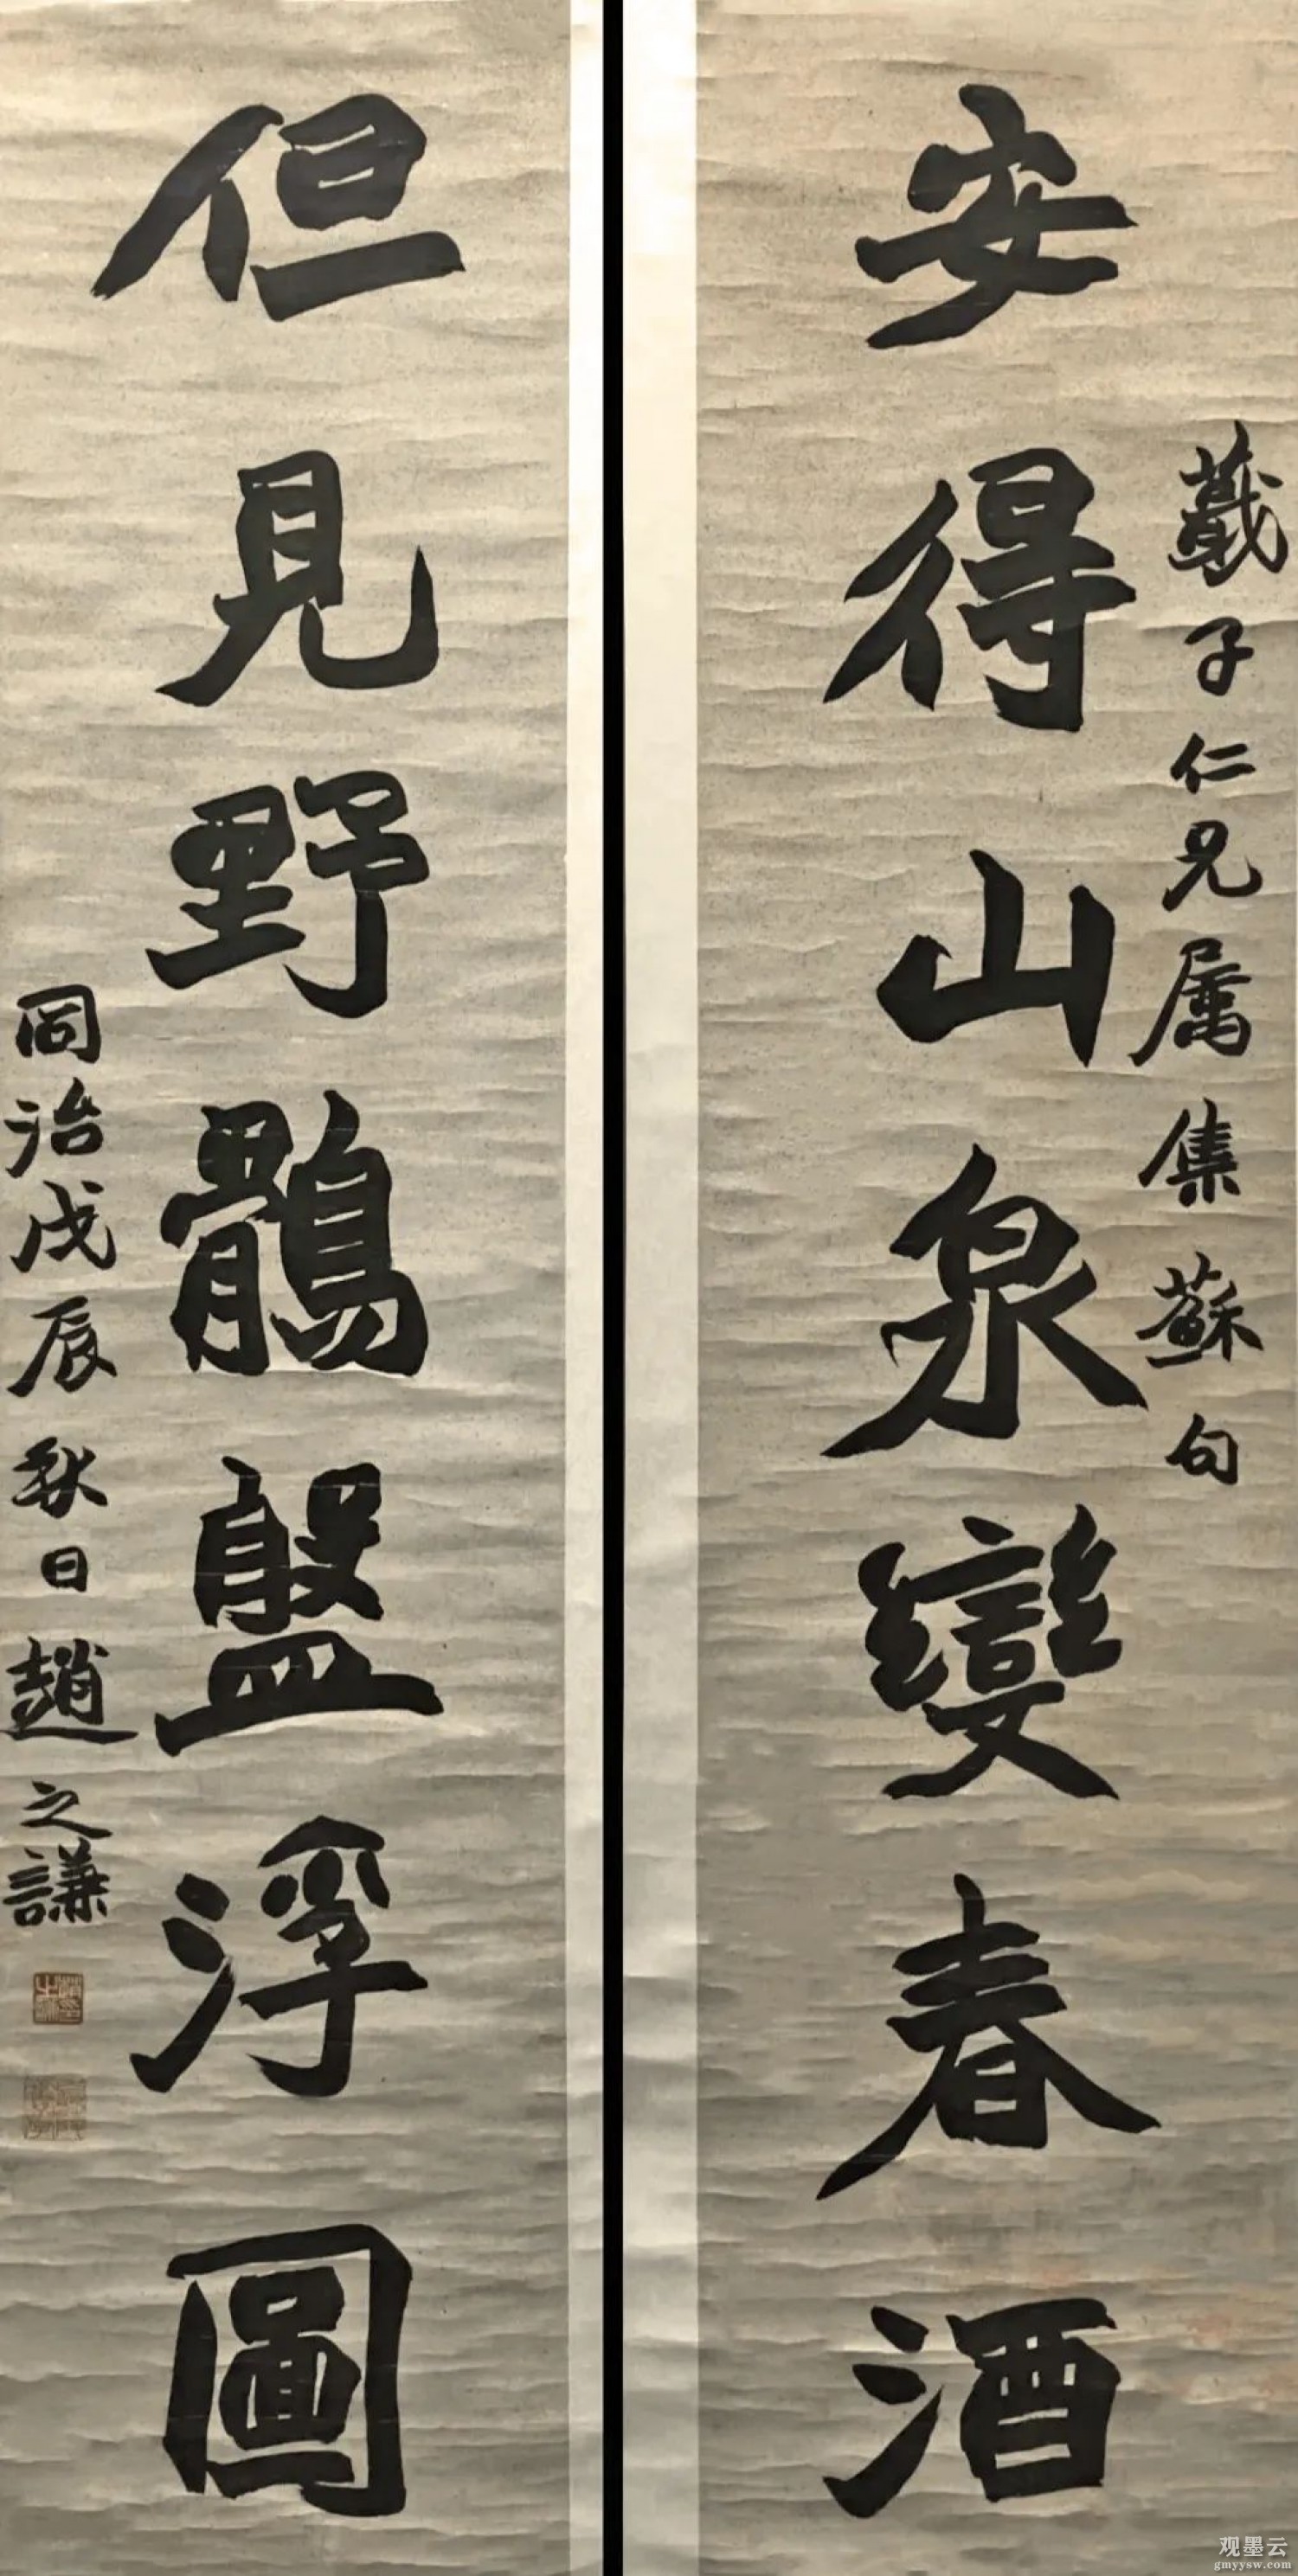 安得山泉變春酒
蕺子仁兄属集蘇句
但見野鶻盤浮圖
同治戊辰秋日趙之謙
观墨云
gmyysw.com